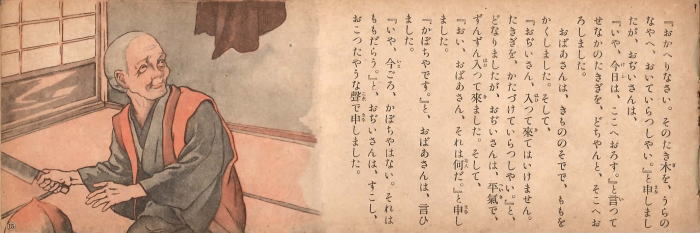 『おかへりなさい。そのたき木を、うらの
なやへ、おいていらつしやい。』と申しまし
たが、おぢいさんは、
『いや、今日は、ここへおろす。』と言つて
せなかのたきぎを、どちやんと、そこへお
ろしました。
おばあさんは、きもののそでで、ももを
かくしました。そして、
『おぢいさん、入つて來てはいけません。
たきぎを、かたづけていらつしやい。』と、
どなりましたが、おぢいさんは、平氣で、
ずんずん入つて來ました。そして
『おい、おばあさん、それは何だ。』と申し
ました。
『かぼちやです。』と、おばあさんは、言ひ
ました。
『いや、今ごろ、かぼちやはない。それは
ももだらう。』と、おぢいさんは、すこし、
おこつたやうな聲で申しました。